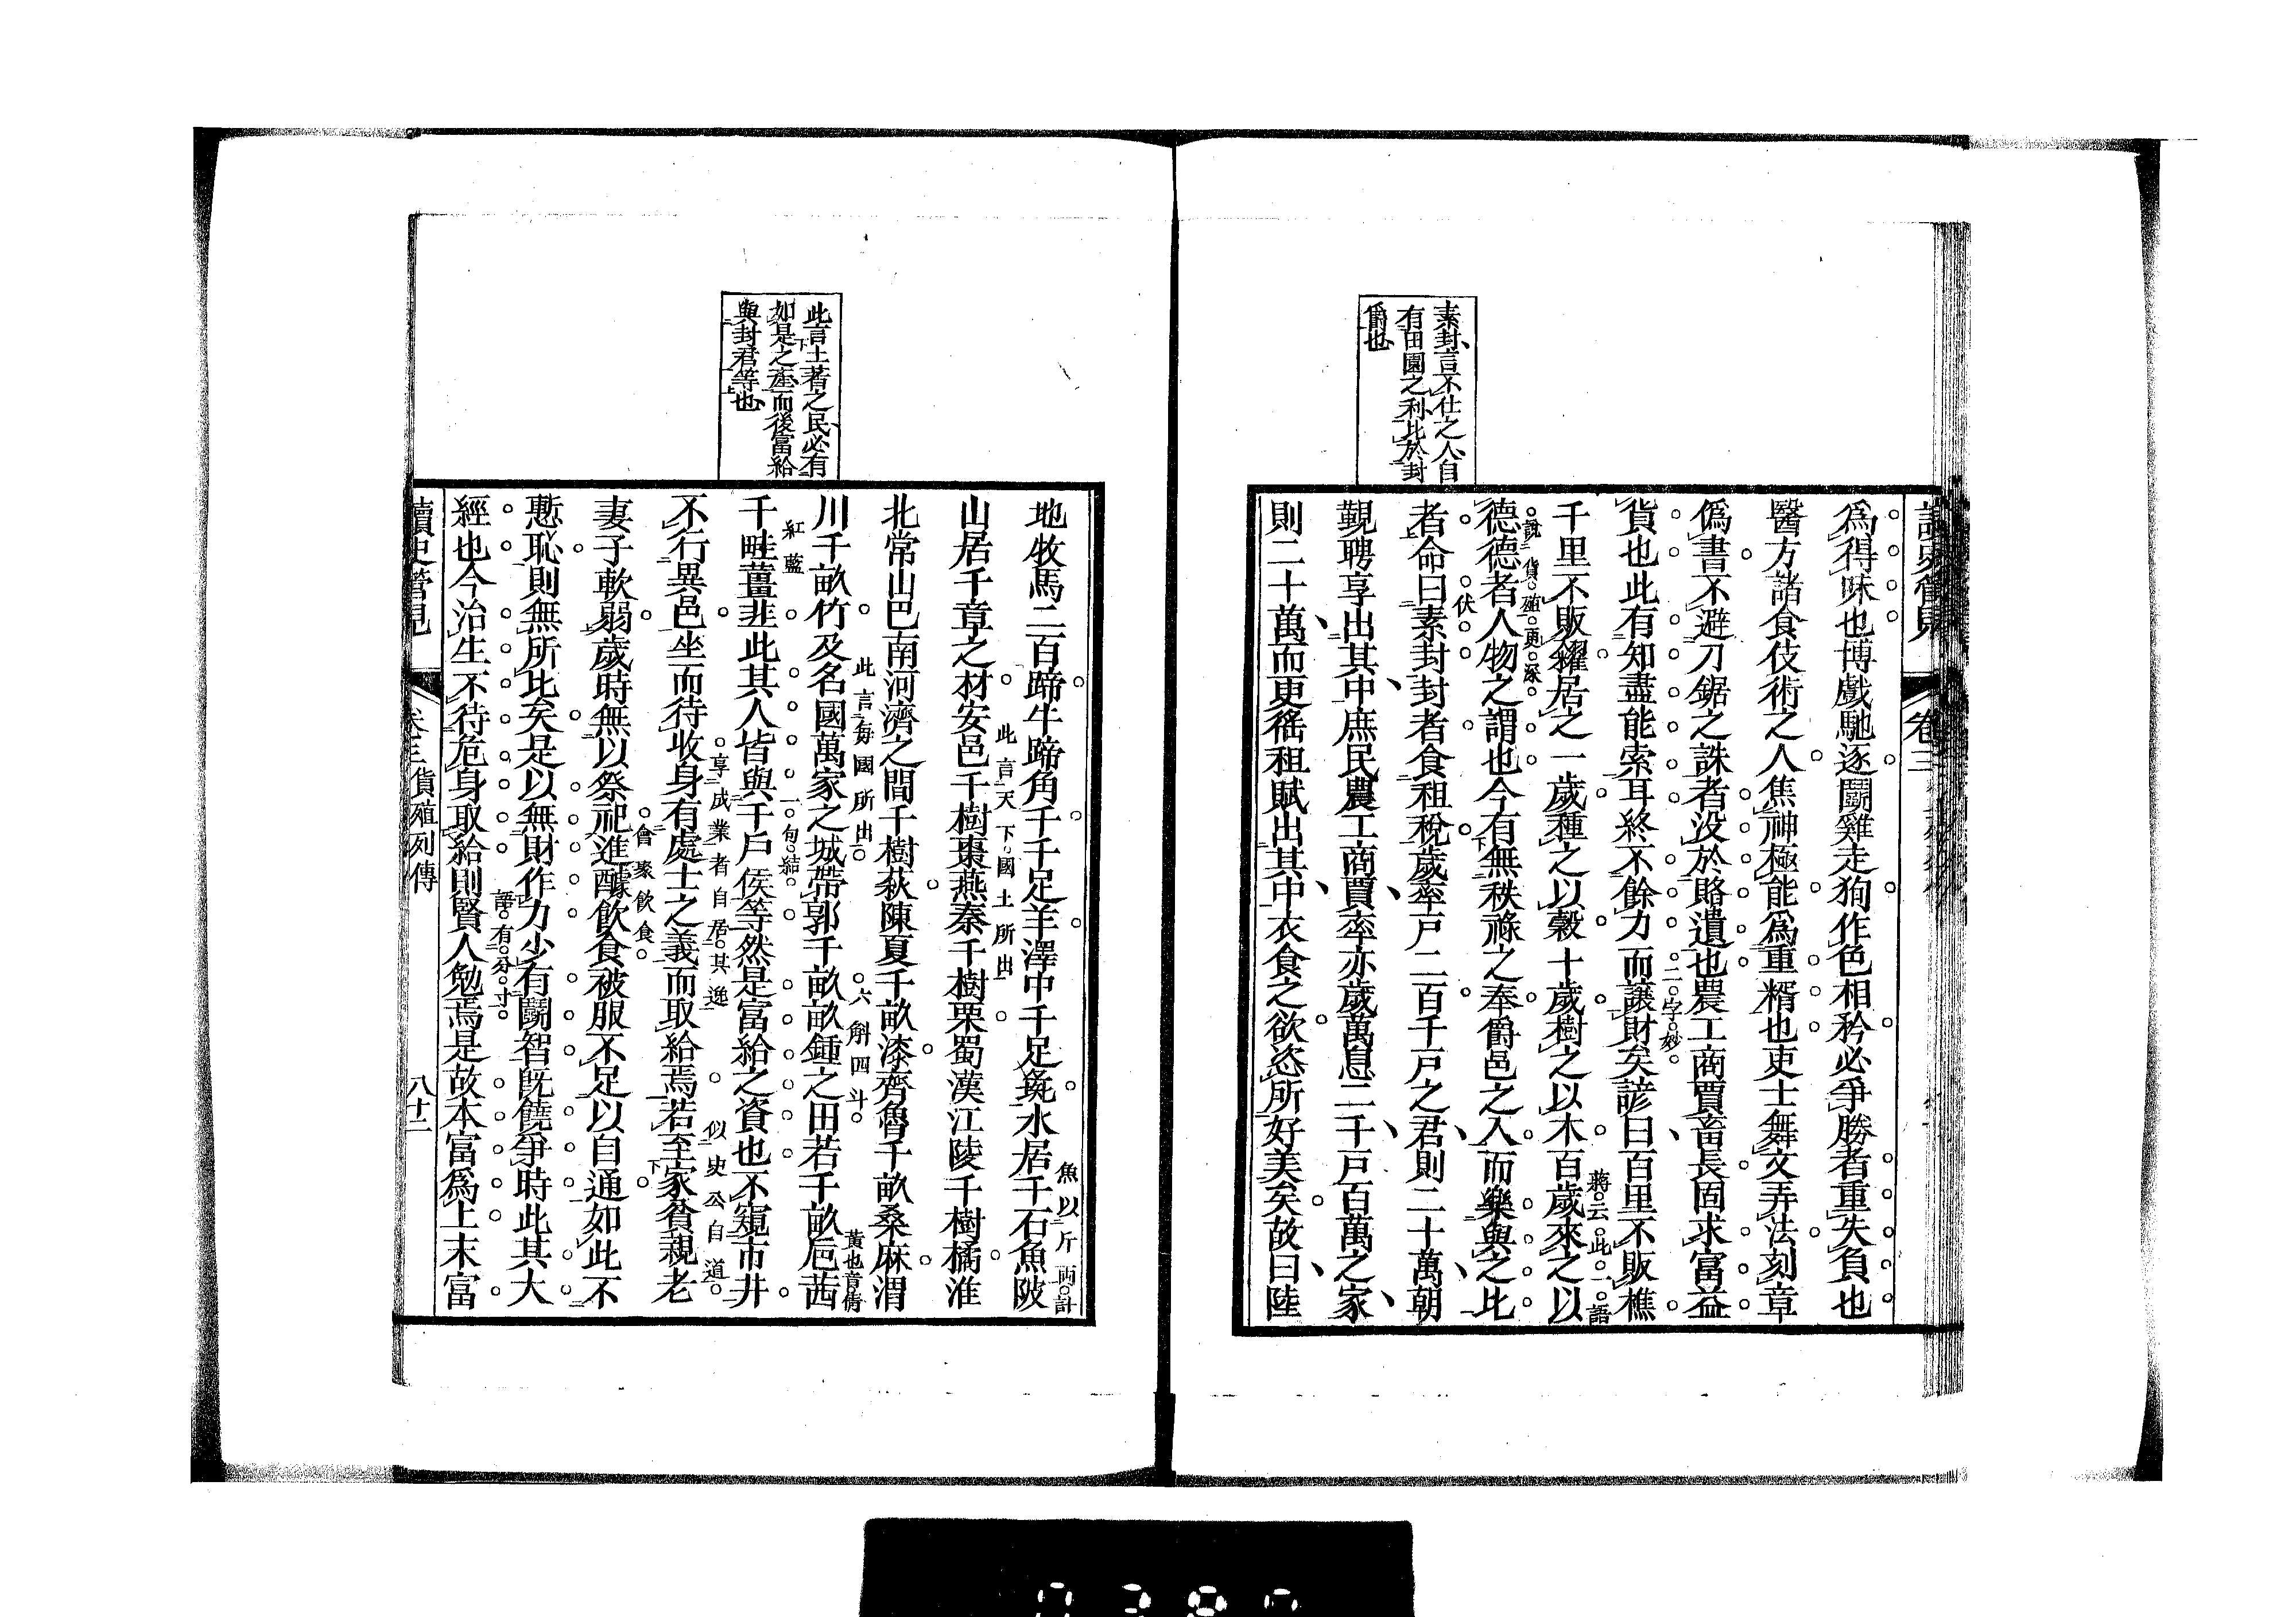 素封言不仕之人自
有田園之利比於封
爵也
卷三
爲得味也博戲馳逐鬬雞走狗作色相矜必爭勝者重失負也
醫方諸食伎術之人焦神極能爲重糈也吏士舞文弄法刻章
僞書不避刀鋸之誅者沒於賂遺也農工商賈畜長固求富益
二字妙
貨也此有知盡能索耳終不餘力而讓財矣諺曰百里不販樵
蔣云此一語
千里不販糴居之一歲種之以穀十歲樹之以木百歲來之以
說貨殖更深
德德者人物之謂也今有無秩祿之奉爵邑之入而樂與之比
伏
者命曰素封封者食租稅歲率戶二百千戶之君則二十萬朝
覲聘享出其中庶民農工商賈率亦歲萬息二千戶百萬之家
則二十萬而更徭租賦出其中衣食之欲恣所好美矣故曰陸
此言土著之民必有
如是之產而後富給
與封君等也
地牧馬二百蹄牛蹄角千千足羊澤中千足彘水居千石魚陂
魚以斤兩計
山居千章之材安邑千樹棗燕秦千樹栗蜀漢江陵千樹橘淮
此言天下國土所出
北常山巴南河濟之間千樹萩陳夏千畝漆齊魯千畝桑麻渭
川千畝竹及名國萬家之城帶郭千畝畝鍾之田若千畝巵茜
此言每國所出
六斛四斗
千畦薑韭此其人皆與千戶侯等然是富給之資也不窺市井
紅藍
一句結
不行異邑坐而待收身有處士之義而取給焉若至家貧親老
享成業者自居其逸
似史公自道
妻子軟弱歲時無以祭祀進醵飲食被服不足以自通如此不
會聚飲食
慙恥則無所比矣是以無財作力少有鬬智既饒爭時此其大
經也今治生不待危身取給則賢人勉焉是故本富爲上末富
語有分寸
讀史管見
卷三貨殖列傳
八十二